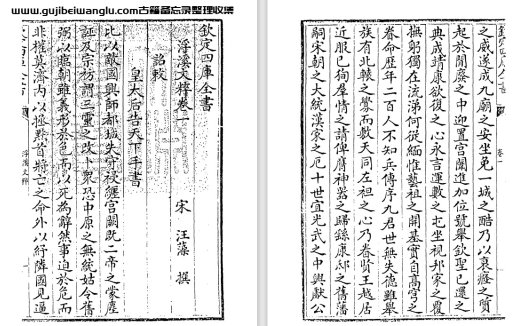 www.gujibeiwanglu.com古籍备忘录整理收集
欽定四庫全書
浮溪文粹卷一
宋 汪藻 撰
詔敕
皇太后告天下手書
比以敵國興師都城失守祲纏宫闕既二帝之蒙塵
誣及宗祊謂三靈之改卜衆恐中原之無統姑令舊
弼以臨朝雖義形於色而以死為辭然事迫於危而
非權莫濟内以拯黔首將亡之命外以紓隣國見逼
浮溪文粹
欽定四庫全書
卷一
之威遂成九廟之安坐免一城之酷乃以衰癃之質
起於閒廢之中迎置宫闈進加位號舉欽聖已還之
典成靖康欲復之心永言運數之屯坐視邦家之覆
撫躬獨在流涕何從緬惟藝祖之開基實自高穹之
眷命歴年二百人不知兵傳序九君世無失德雖舉
族有北轅之釁而敷天同左袒之心乃眷賢王越居
近服已徇羣情之請俾膺神器之歸繇康邸之舊藩
嗣宋朝之大統漢家之厄十世宜光武之中興獻公